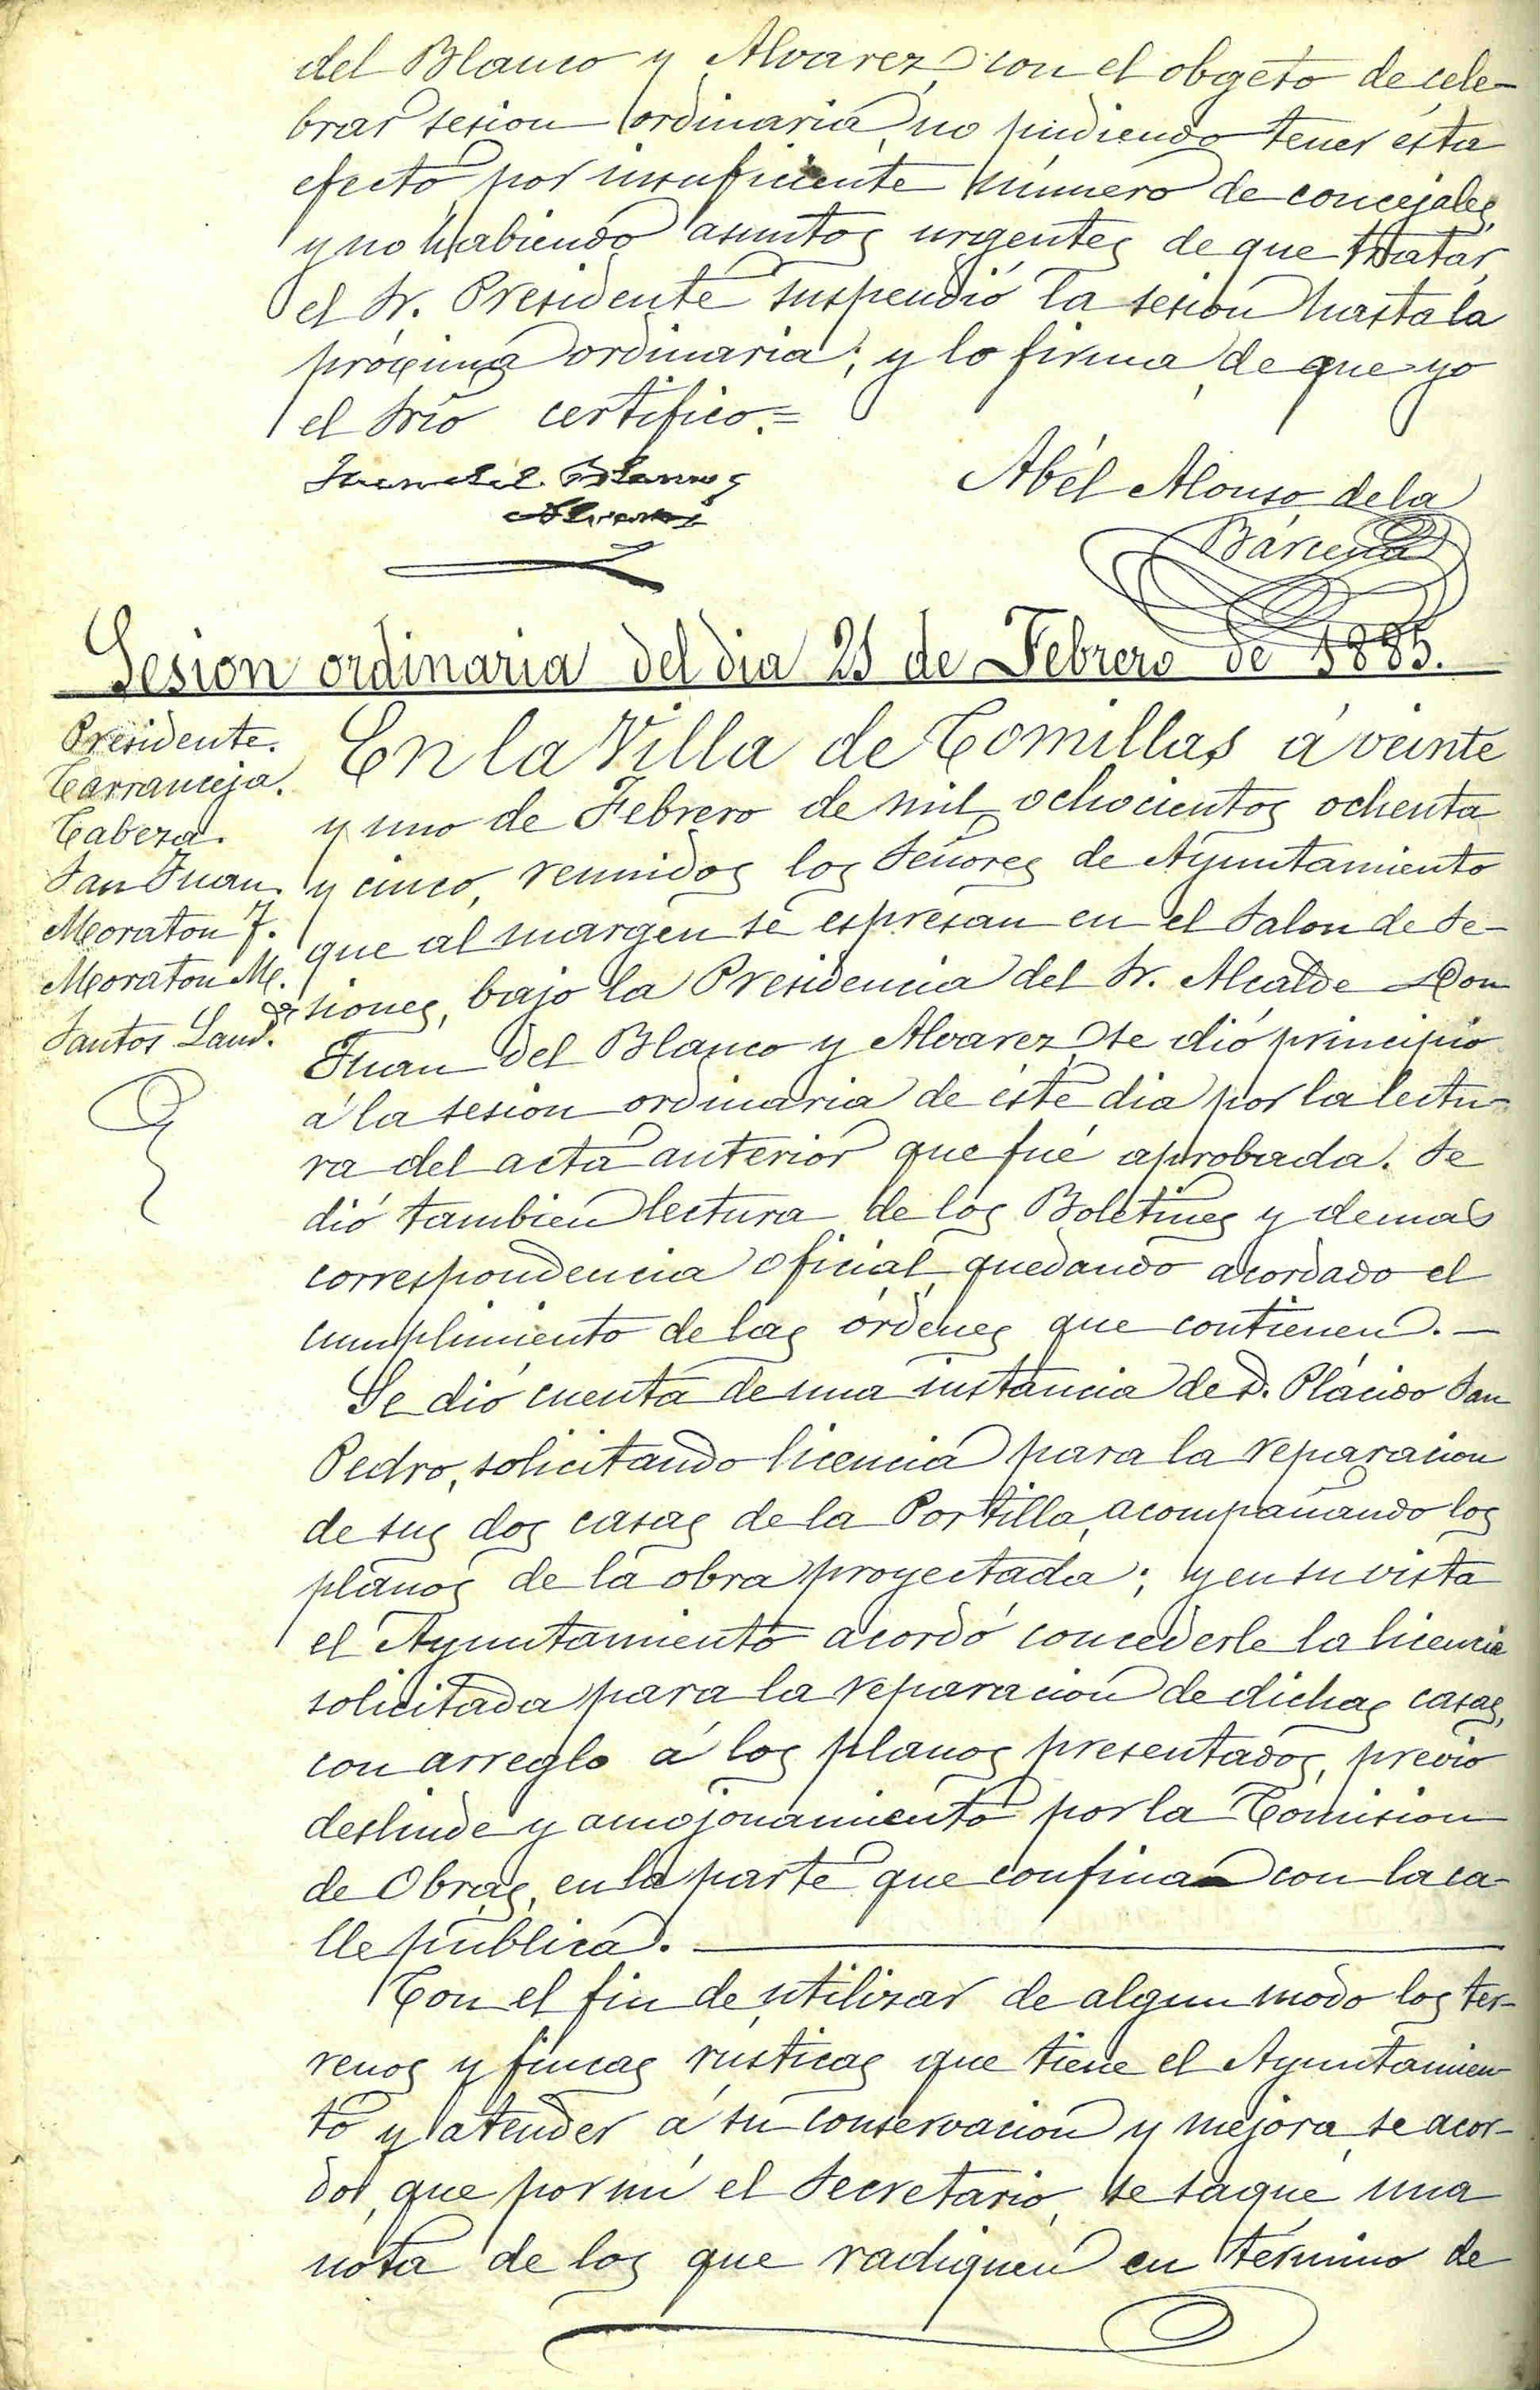 del Blanco y Alvarez, con el obgeto de cele-
brar sesion ordinaria, no pudiendo tener ésta
efecto por insuficiente número de concejales,
y no habiendo asuntos urgentes de que tratar,
el Sr. Presidente suspendió la sesion hasta la
próxima ordinaria; y lo firma, de que yo
el Srio certifico.=
Juan del Blanco y
Alvarez
Abél Alonso de la
Bárcena
Sesion ordinaria del dia 21 de Febrero de 1885.
Presidente.
Carranceja.
Cabeza.
San Juan.
Moraton J.
Moraton M.
Santos Land.
En la Villa de Comillas á veinte
y uno de Febrero de mil ochocientos ochenta
y cinco, reunidos los Señores de Ayuntamiento
que al margen se espresan en el Salon de Se-
siones, bajo la Presidencia del Sr. Alcalde Don
Juan del Blanco y Alvarez, se dió principio
á la sesion ordinaria de éste dia por la lectu-
ra del acta anterior que fué aprobada. Se
dió tambien lectura de los Boletines y demas
correspondencia oficial, quedando acordado el
cumplimiento de las órdenes que contienen.—
Se dió cuenta de una instancia de D. Plácido San
Pedro, solicitando licencia para la reparacion
de sus dos casas de la Portilla, acompañando los
planos de la obra proyectada; y en su vista
el Ayuntamiento acordó concederle la licencia
solicitada para la reparacion de dichas casas,
con arreglo á los planos presentados, previo
deslinde y amojonamiento por la Comision
de Obras, en la parte que confinan con la ca-
lle pública.—
Con el fin de utilizar de algun modo los ter-
renos y fincas rústicas que tiene el Ayuntamien
to y atender á su conservacion y mejora, se acor-
dó, que por mi el Secretario, se saque una
nota de los que radiquen en término de